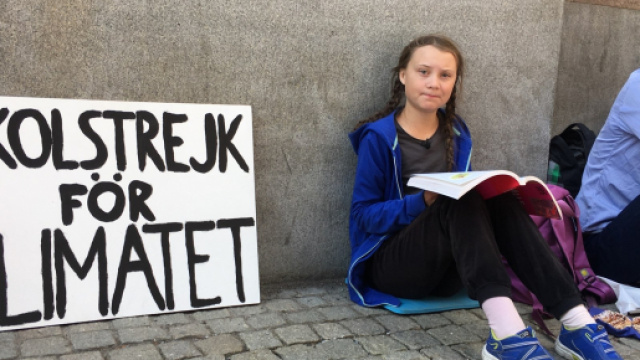 KOLSTREJK
FÖR
LIMATET